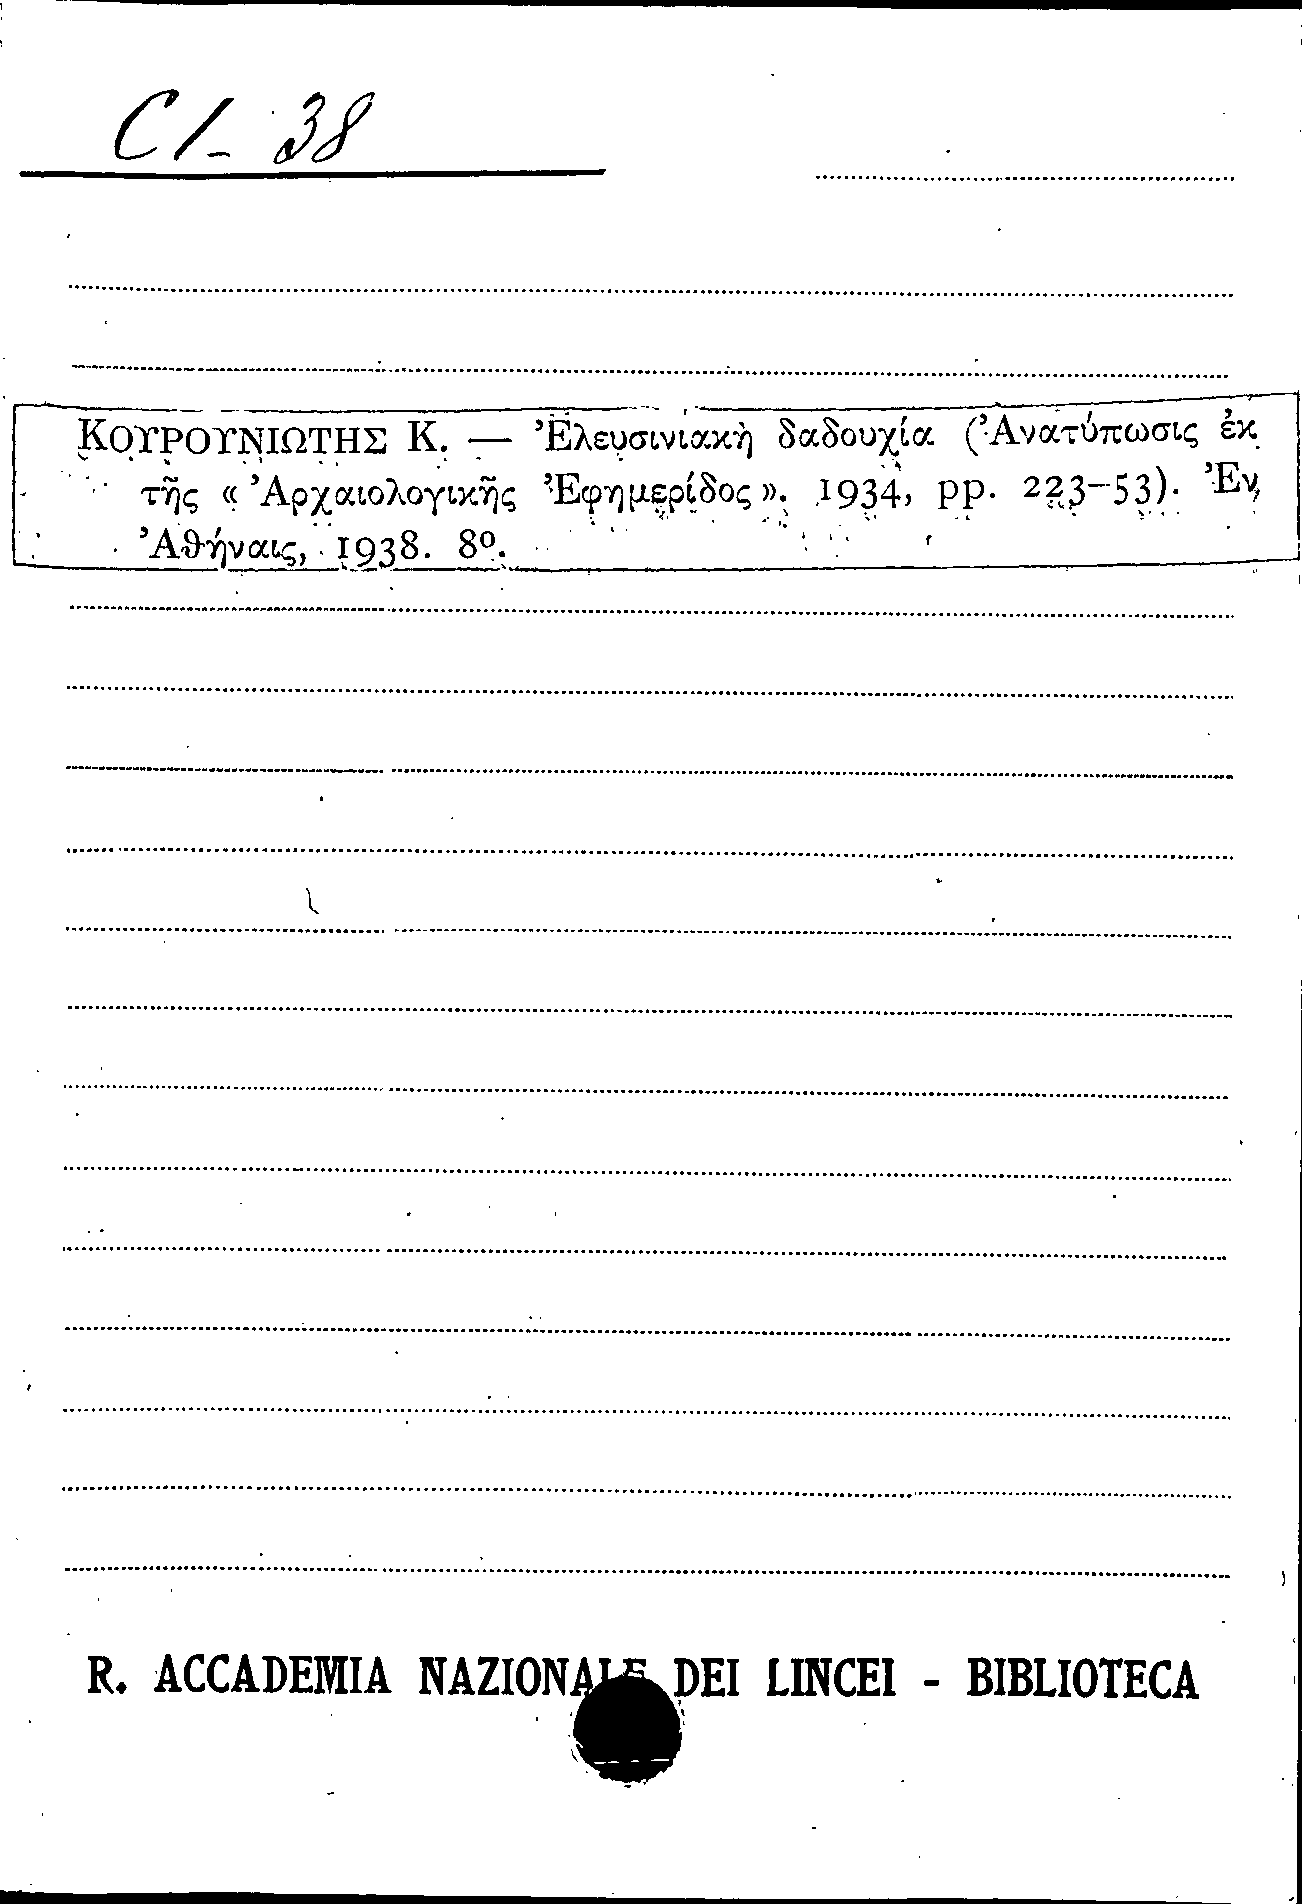 C/- 38
ΚΟΥΡΟΥΝΙΩΤΗΣ Κ. — Ἐλευσινιακὴ δαδουχία (Ἀνατύπωσις ἐκ
τῆς « Ἀρχαιολογικῆς Ἐφημερίδος ». 1934, pp. 223-53). Ἐν
Ἀθήναις, 1938. 8º.
R. ACCADEMIA NAZIONALE DEI LINCEI - BIBLIOTECA